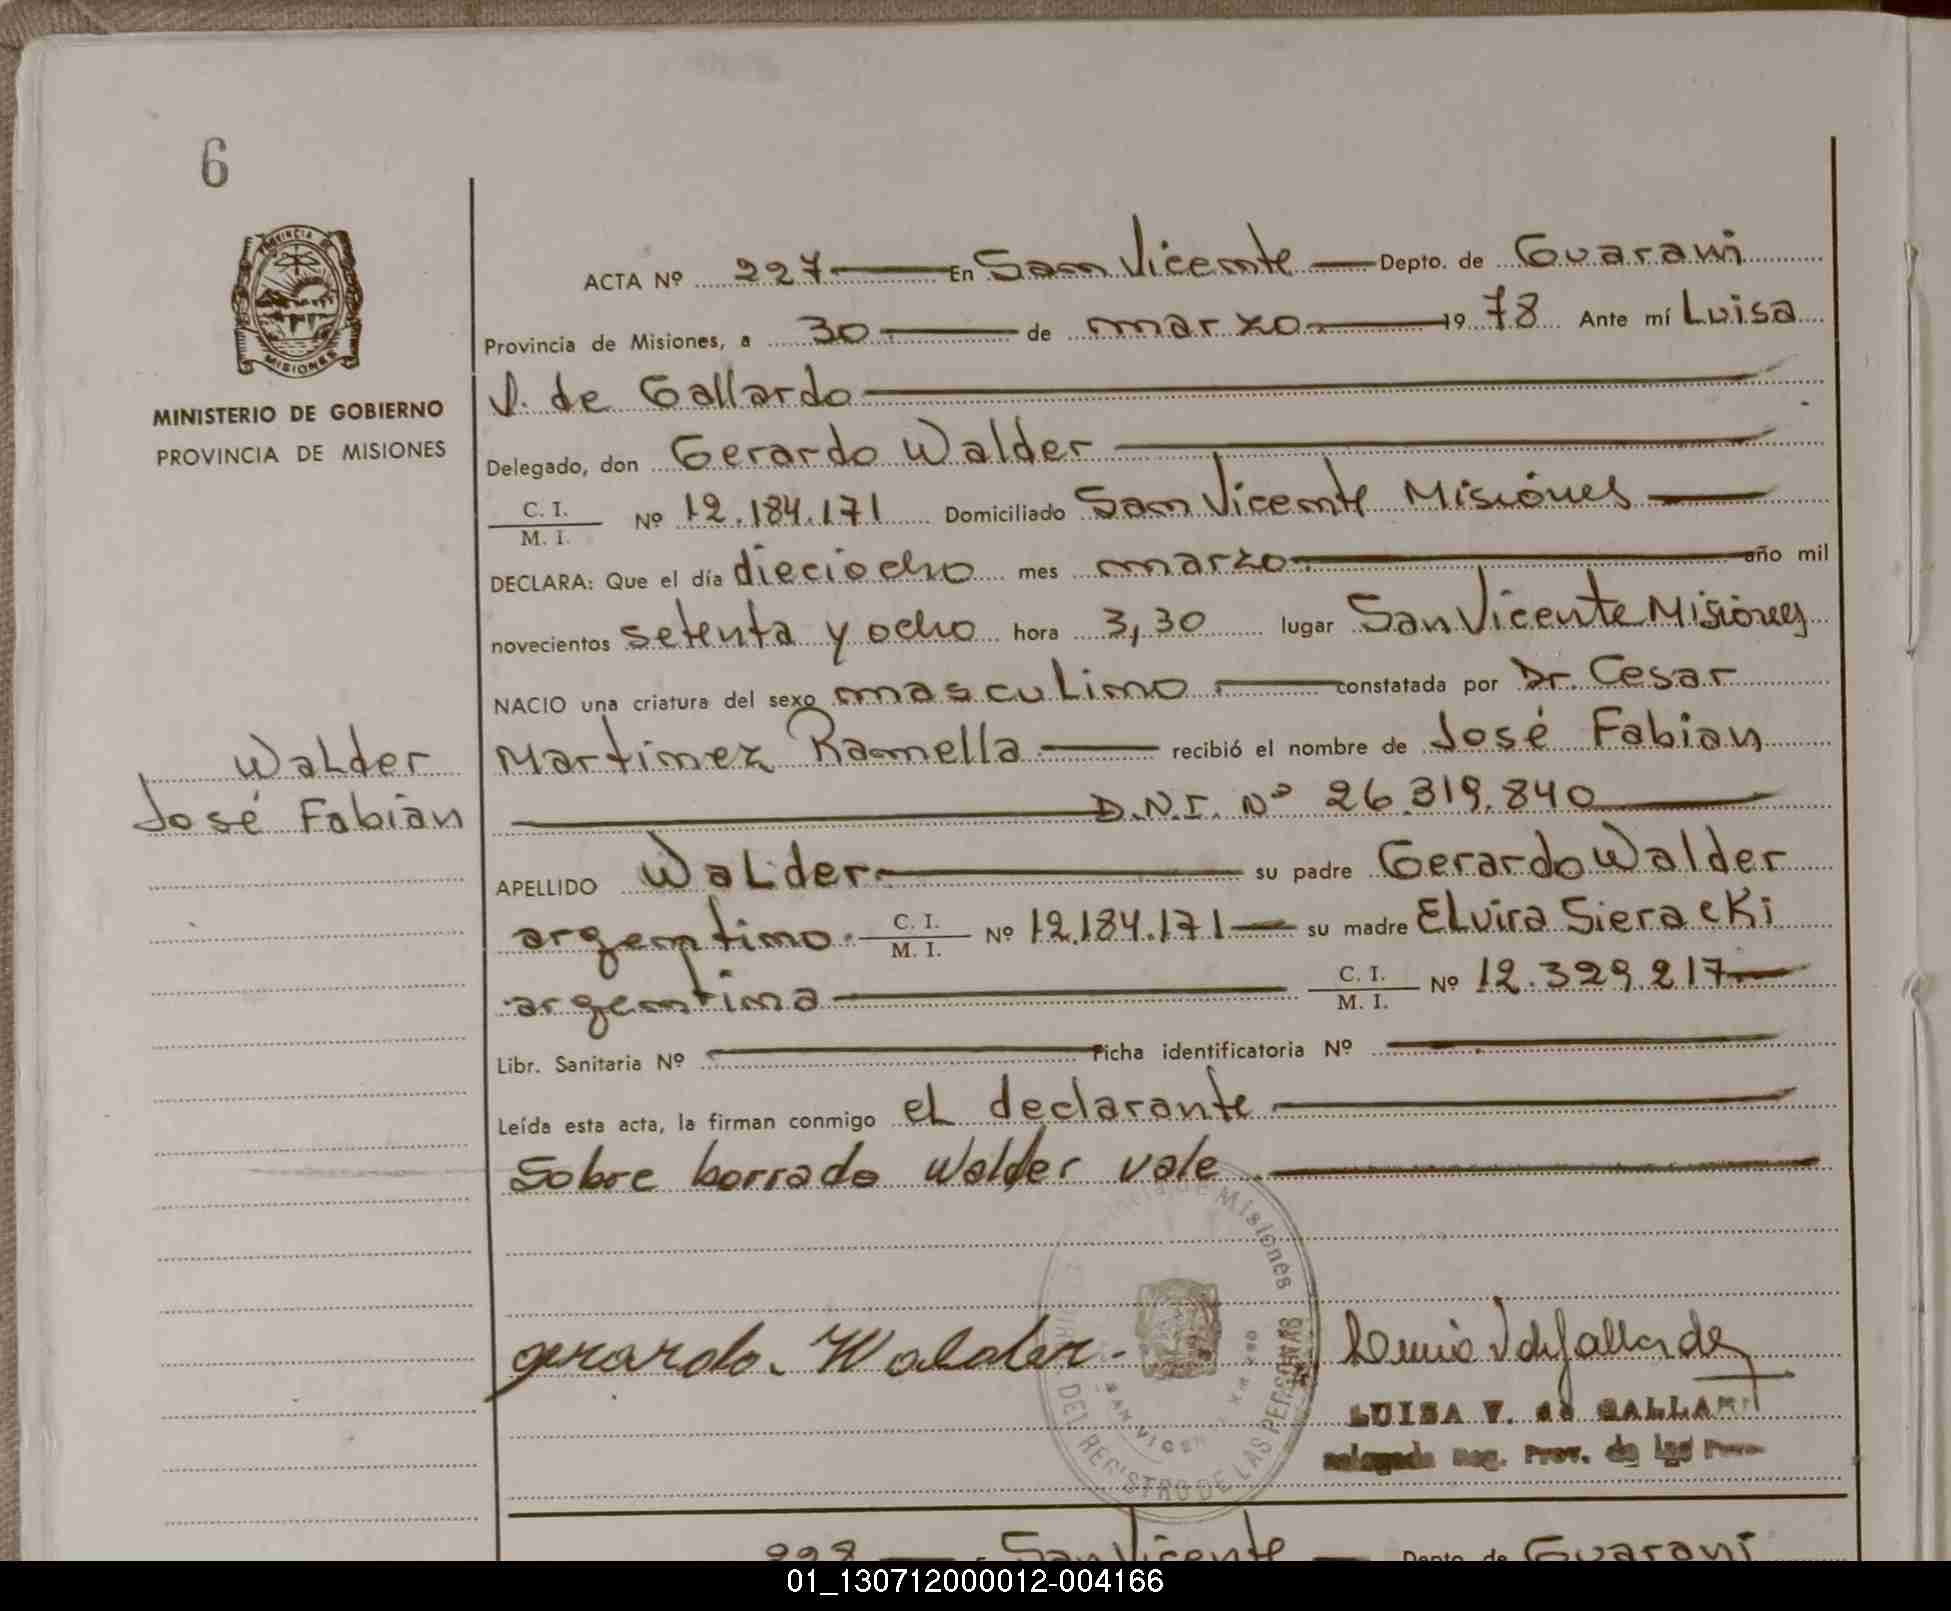 6
PROVINCIA DE
MISIONES
MINISTERIO DE GOBIERNO
PROVINCIA DE MISIONES
Walder
José Fabián
ACTA Nº 227 En San Vicente Depto. de Guaraní
Provincia de Misiones, a 30 de marzo 1978 Ante mí Luisa
V. de Gallardo
Delegado, don Gerardo Walder
C. I.
M. I. Nº 12.184.171 Domiciliado San Vicente Misiones
DECLARA: Que el día dieciocho mes marzo año mil
novecientos setenta y ocho hora 3,30 lugar San Vicente Misiones
NACIO una criatura del sexo masculino constatada por Dr. Cesar
Martinez Ramella recibió el nombre de José Fabian
D.N.I. Nº 26.319.840
APELLIDO Walder su padre Gerardo Walder
argentino. C. I. M. I. Nº 12.184.171 su madre Elvira Sieracki
argentina C. I. M. I. Nº 12.329.217
Libr. Sanitaria Nº Ficha identificatoria Nº
Leída esta acta, la firman conmigo el declarante
Sobre borrado Walder vale
de Misiones
DEL REGISTRO DE LAS PERSONAS
gerardo. Walder.
LUISA V. de GALLAR
Delegada Reg. Prov. de las
228 San Vicente Depto. de Guaraní
01_130712000012-004166